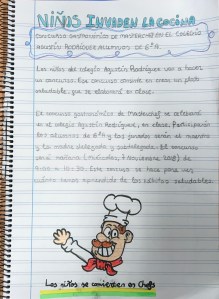 NIÑOS INVADEN LA COCINA
CONCURSO GASTRONÓMICO DE MASTERCHEF EN EL COLEGIO
AGUSTÍN RODRÍGUEZ ALUMNOS DE 6ºA.
Los niños del colegio Agustín Rodríguez van a hacer
un concurso. Ese concurso consiste en crear un plato
saludable, que se elaborará en clase.
Ese concurso gastronómico de Masterchef se celebrará
en el colegio Agustín Rodríguez, en clase. Participarán
los alumnos de 6ºA y los jurados serán el maestro
y las madres delegada y subdelegada. El concurso
será mañana (miércoles, 7 noviembre, 2018) de
9:00 a 10:30. Este concurso se hace para que
los niños sepan aprender de los hábitos saludables.
Los niños se convierten en Chefs